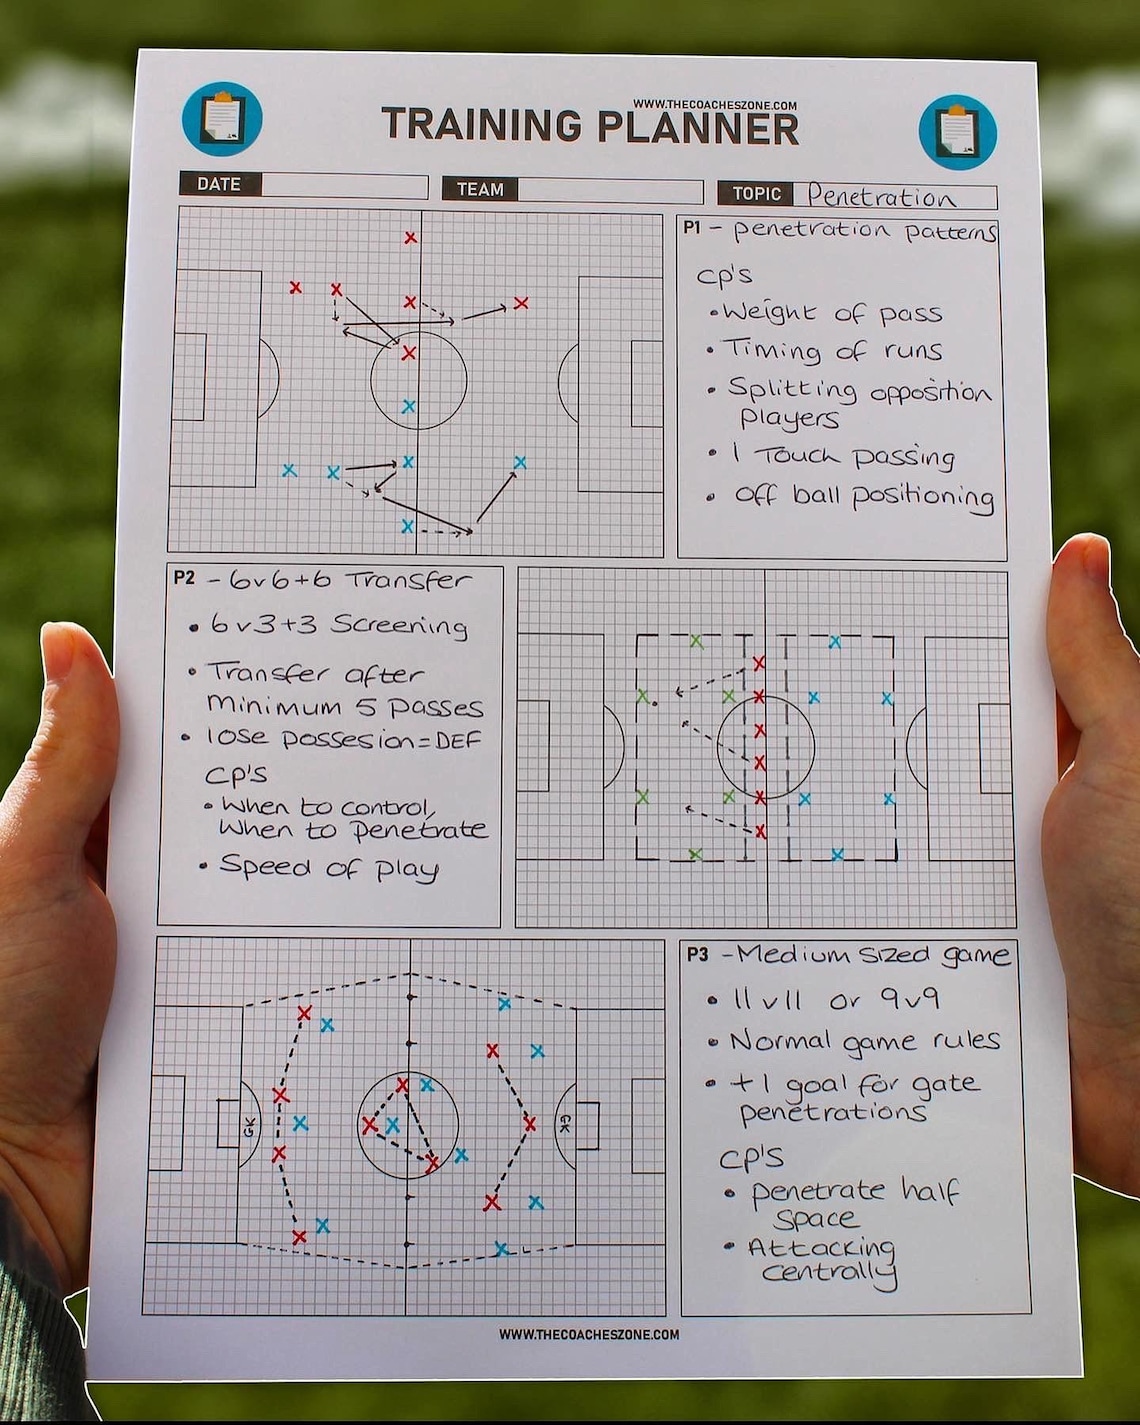 WWW.THECOACHESZONE.COM
TRAINING PLANNER
DATE
TEAM
TOPIC Penetration
P1 - penetration patterns
CP'S
• Weight of pass
• Timing of runs
• Splitting opposition
players
• 1 Touch passing
• Off ball positioning
P2 - 6v6+6 Transfer
• 6v3+3 Screening
• Transfer after
minimum 5 passes
• lose possesion=DEF
CP'S
• When to control,
When to penetrate
• Speed of play
GK
GK
P3 - Medium sized game
• 11v11 or 9v9
• Normal game rules
• +1 goal for gate
penetrations
CP'S
• penetrate half
space
• Attacking
centrally
WWW.THECOACHESZONE.COM